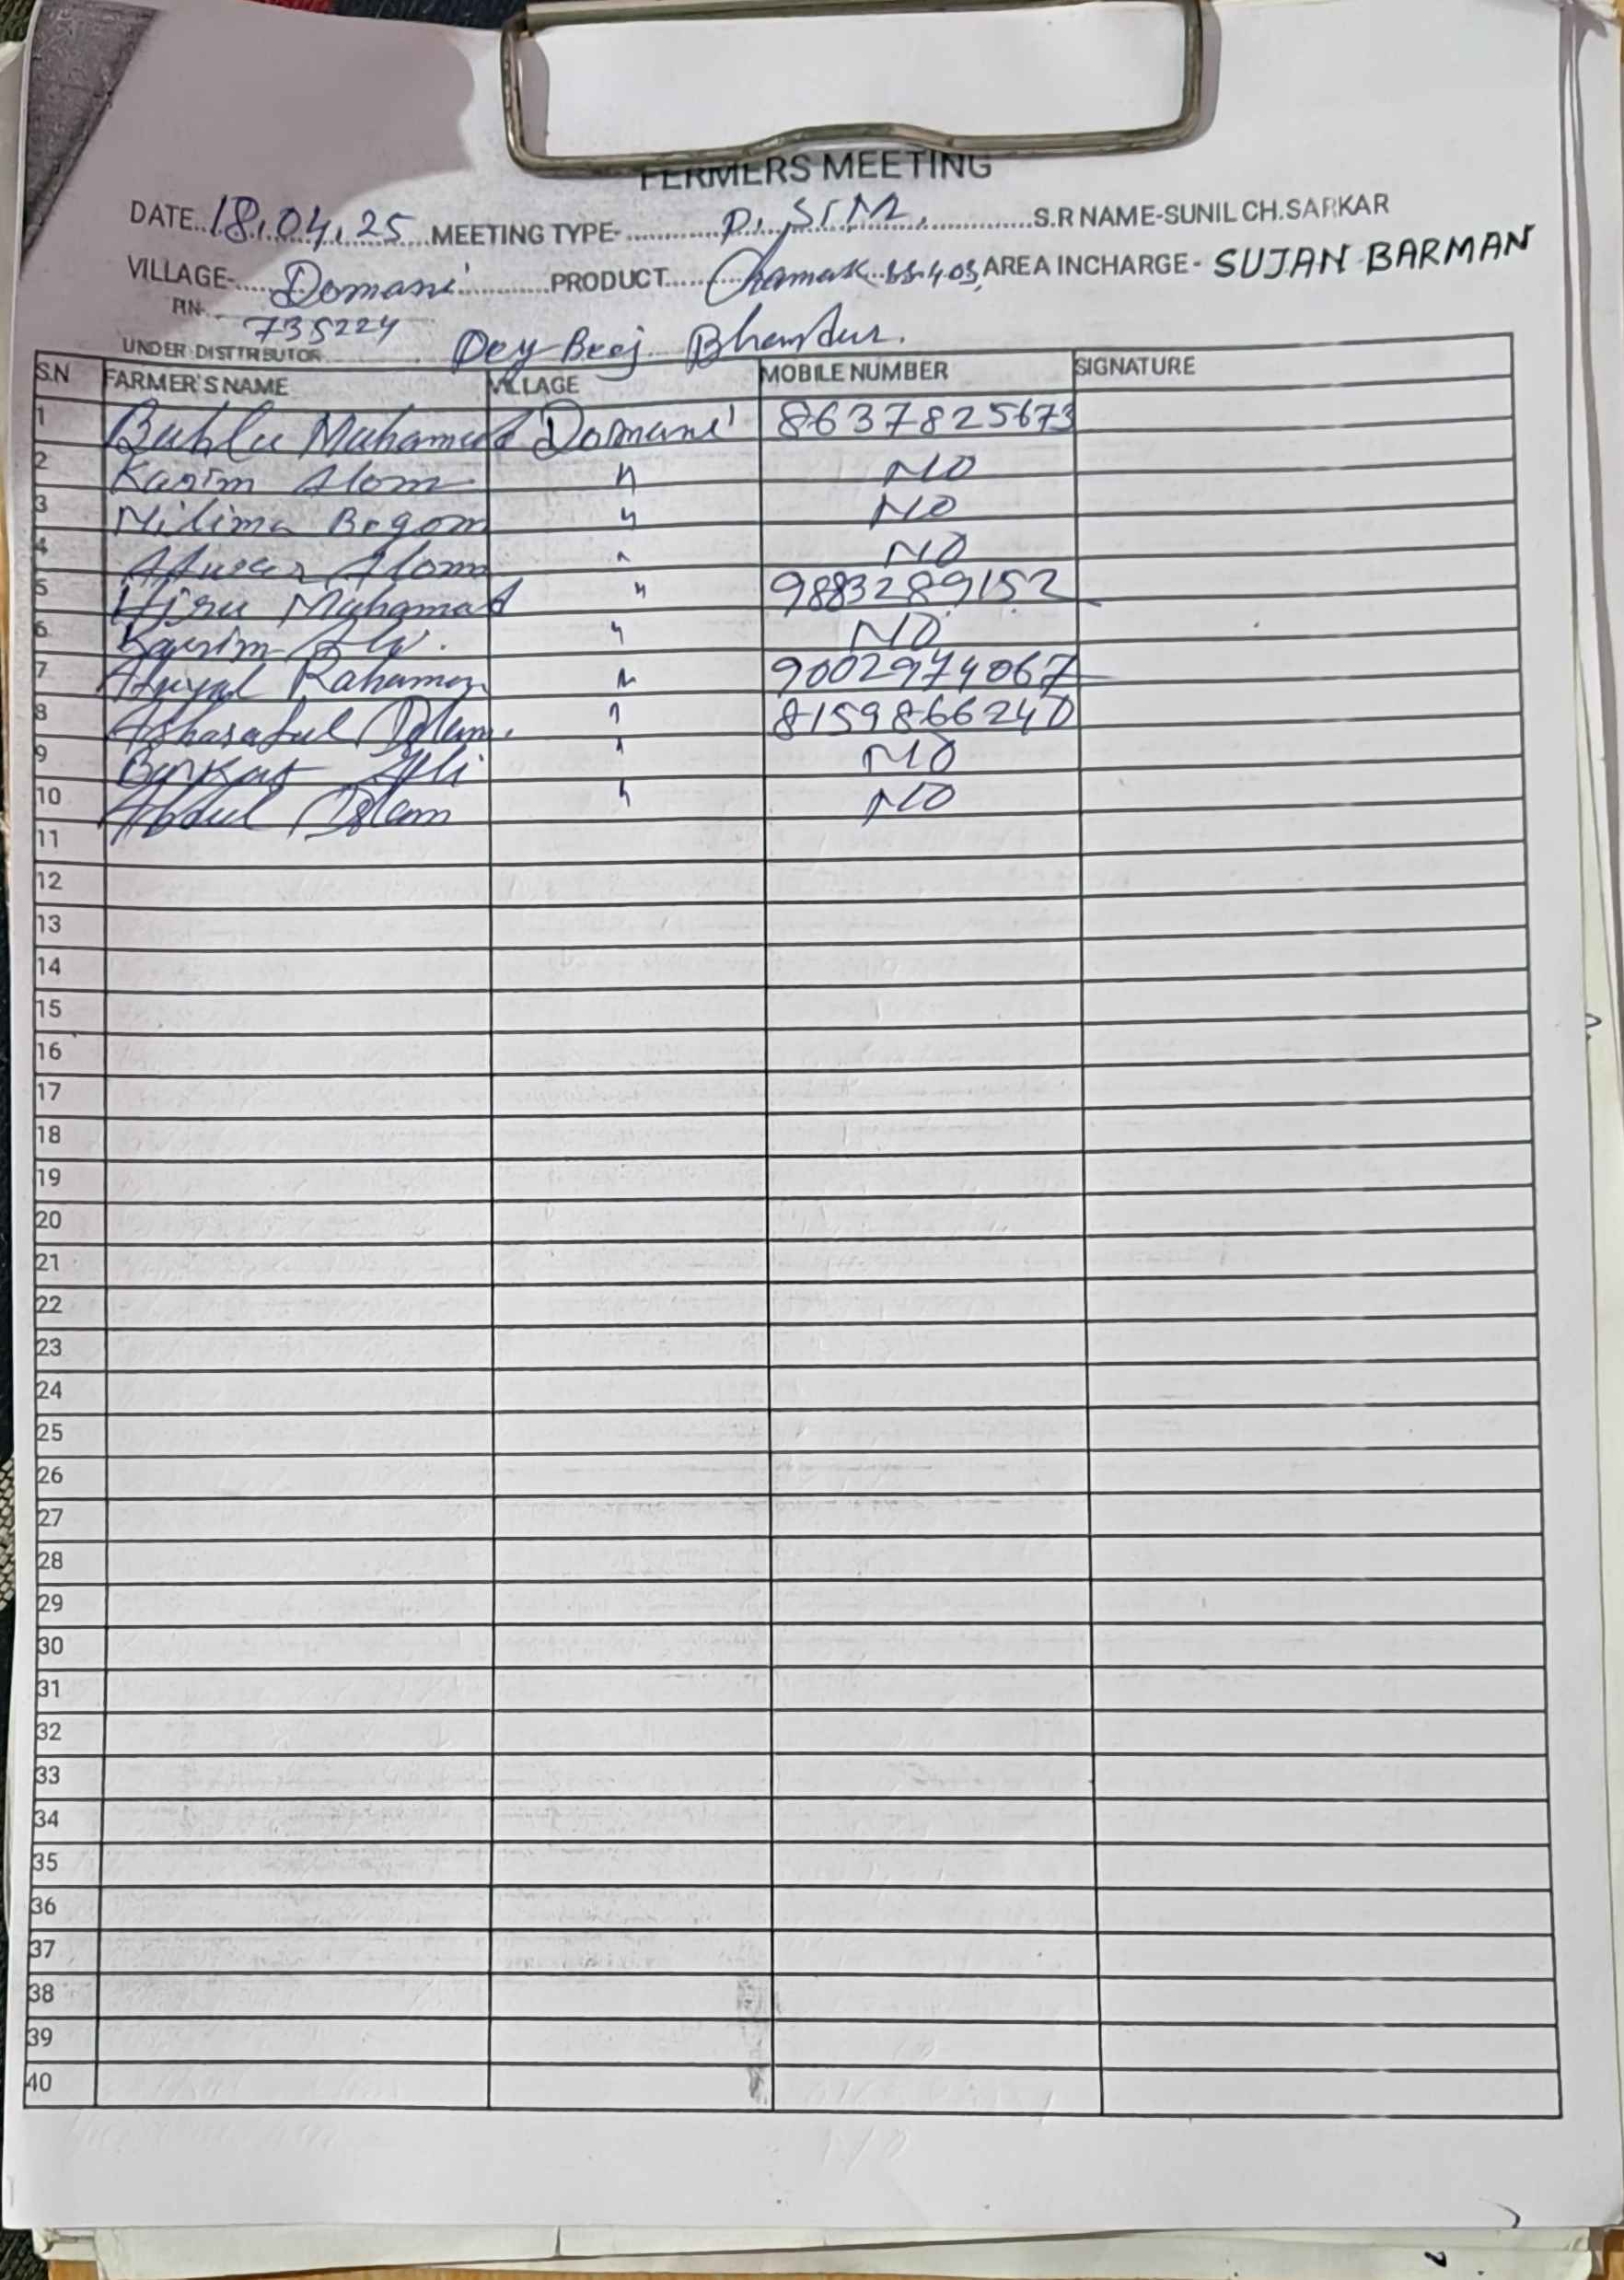 FERMERS MEETING
DATE..18.04.25....MEETING TYPE-............D.S.M..................S.R NAME-SUNIL CH.SARKAR
VILLAGE-....Domani............PRODUCT.....Chamak..SS.403, AREA INCHARGE- SUJAN BARMAN
PIN-.. 735224
UNDER DISTTRBUTOR.............. Dey Beej Bhandar.
S.N FARMER'S NAME VILLAGE MOBILE NUMBER SIGNATURE
1 Bablu Muhamad Domani 8637825673
2 Karim Alom " NO
3 Milima Begom " NO
4 Alom " NO
5 Hiru Muhamad " 9883289152
6 " NO
7 Rahaman " 9002974067
8 Asharaful Islam. " 8159866240
9 Barkat Ali " NO
10 Abdul Islam " NO
11
12
13
14
15
16
17
18
19
20
21
22
23
24
25
26
27
28
29
30
31
32
33
34
35
36
37
38
39
40